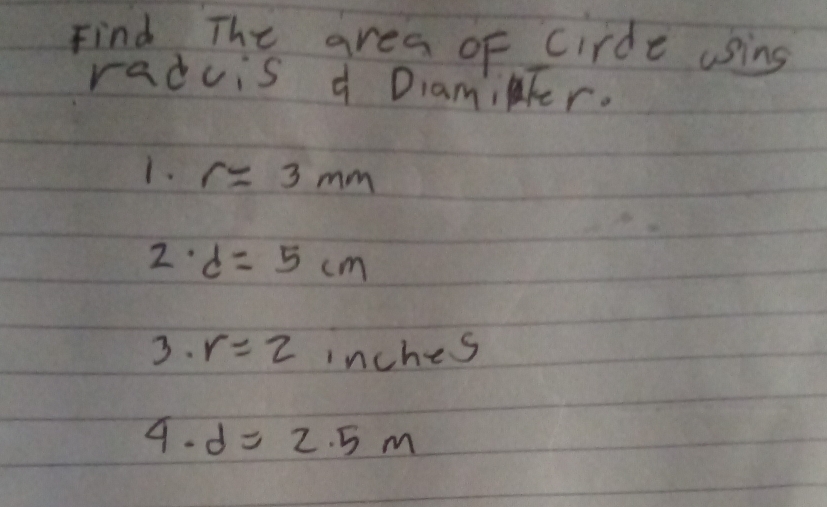 Find The area of Circle using
raduis & Diamiter.
1. r = 3 mm
2. d = 5 cm
3. r = 2 inches
4. d = 2.5 m